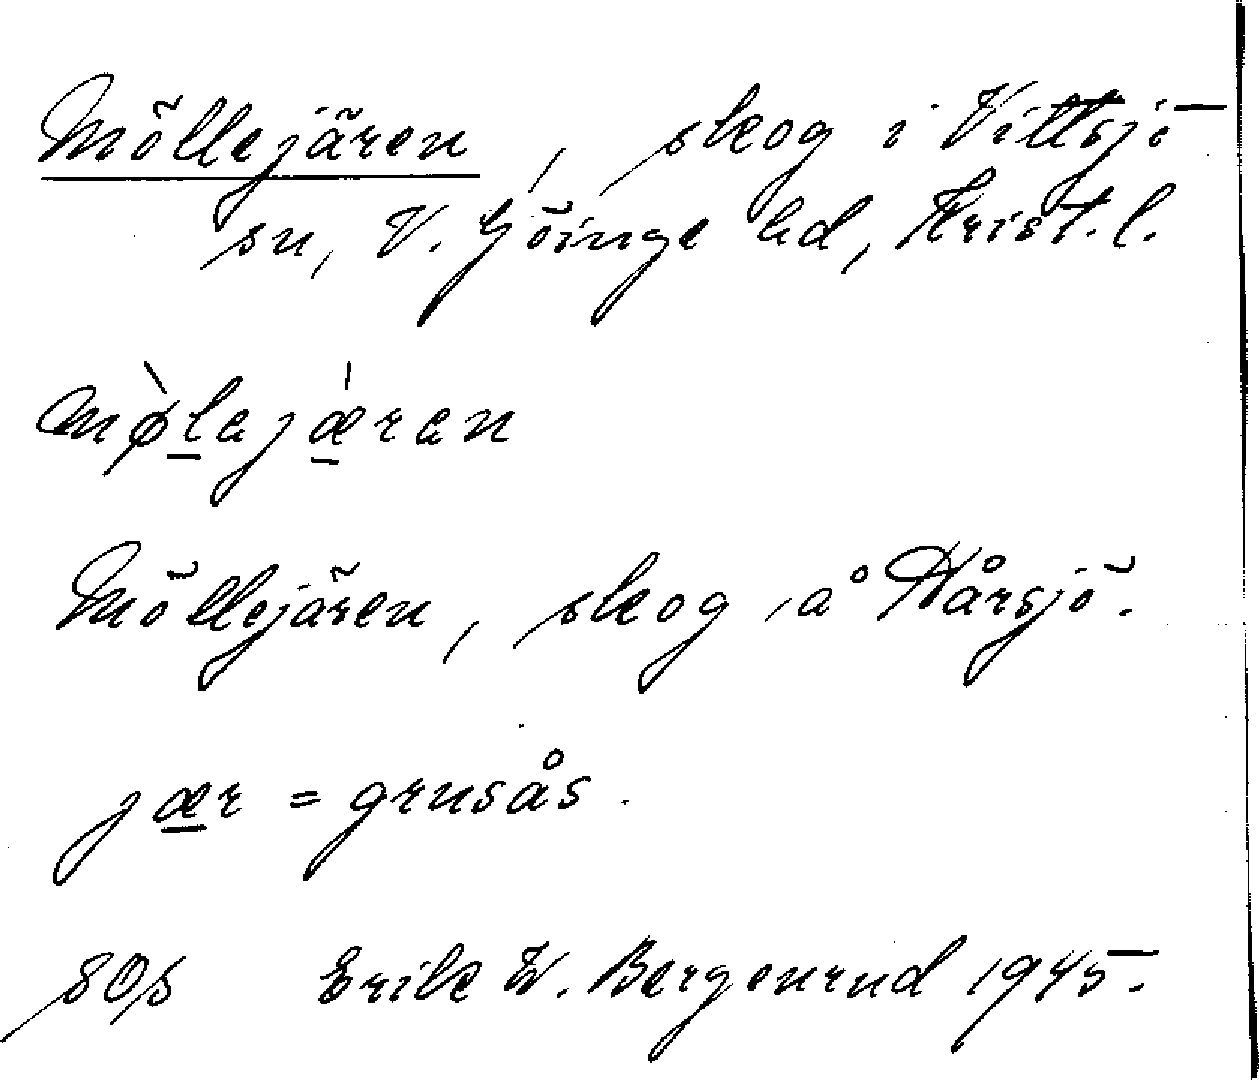 Möllejären, skog i Vittsjö
sn, V. Göinge hd, Krist. l.
mø̀lejǽren
Möllejären, skog å Hårsjö.
jær = grusås.
Erik W. Bergenrud 1945.